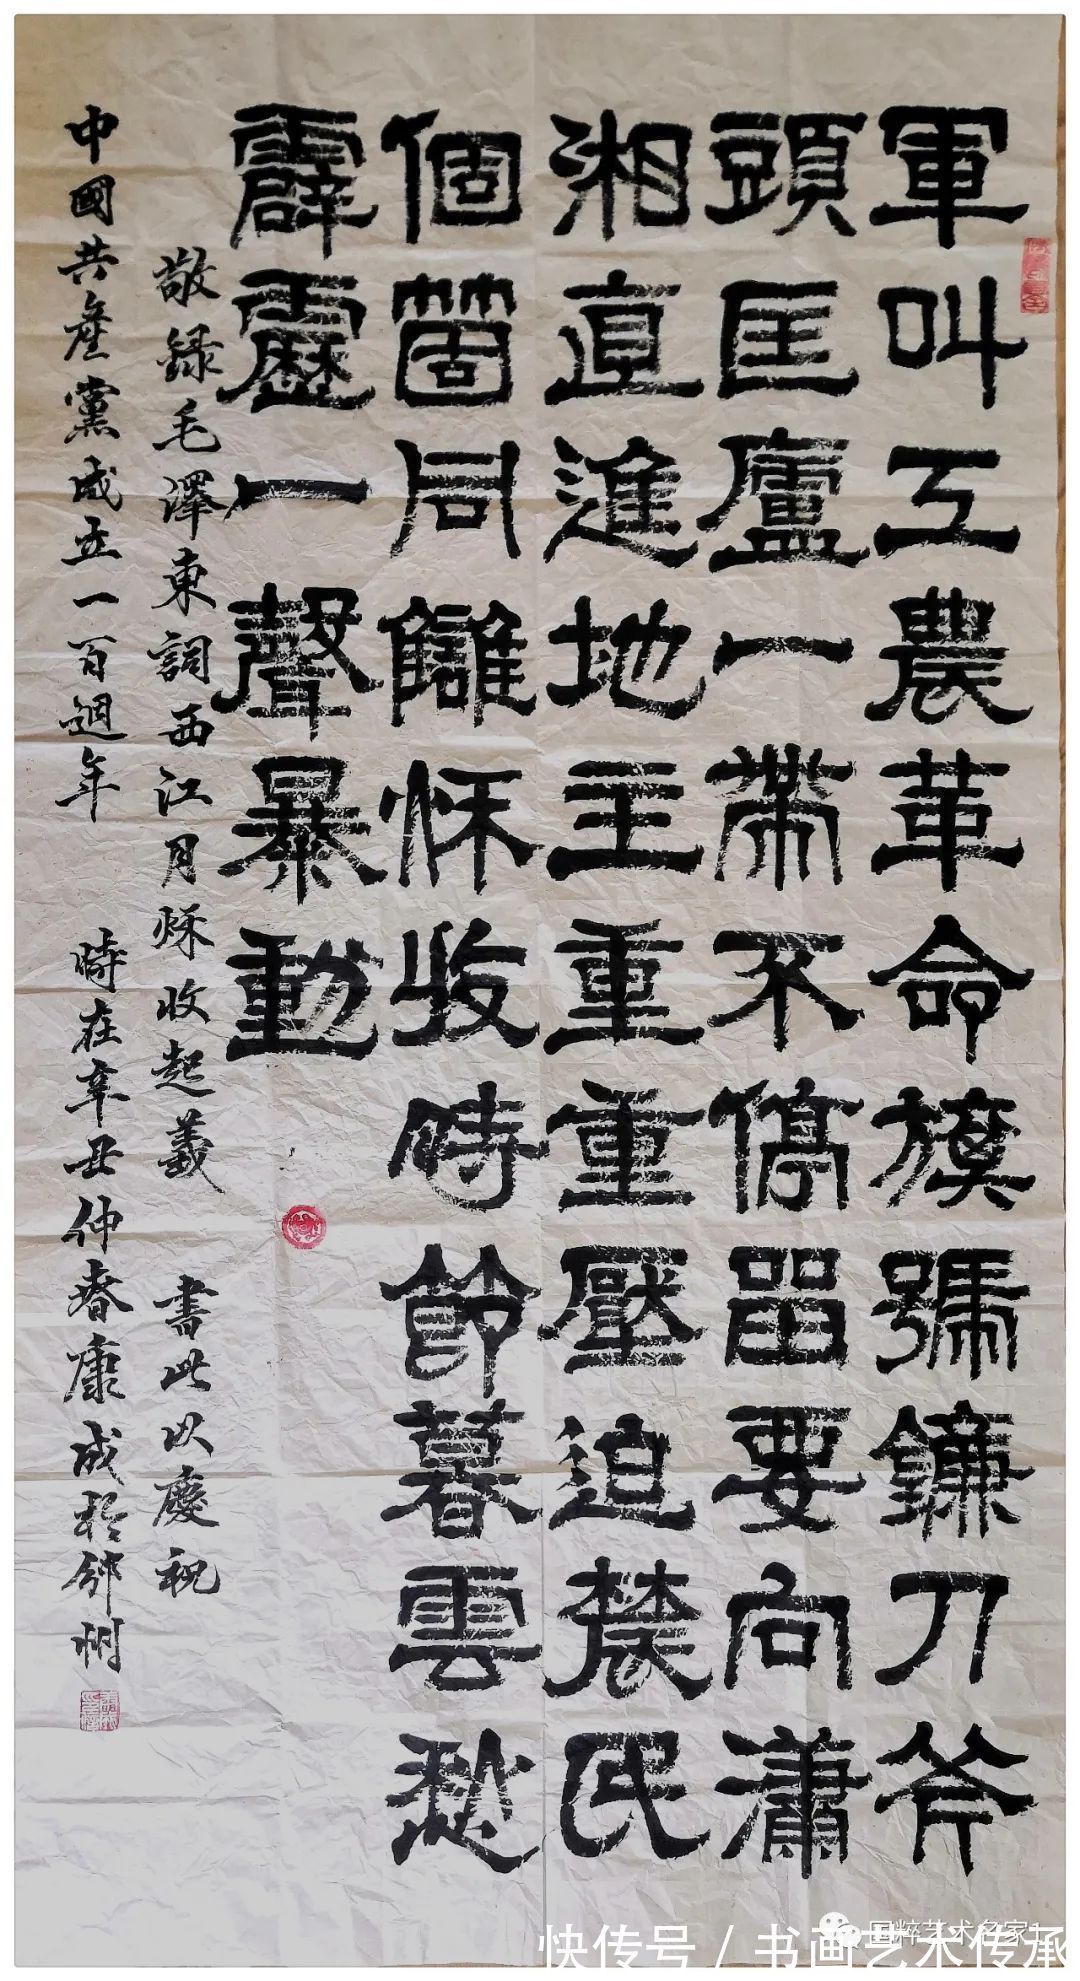 軍叫工農革命旗號鐮刀斧
頭匡廬一帶不停留要向瀟
湘直進地主重重壓迫農民
個箇同讎秋收時節暮雲愁
霹靂一聲暴動
敬録毛澤東詞西江月秋收起義 書此以慶祝
中國共產黨成立一百週年 時在辛丑仲春康成於鄧州
国粹艺术名家
快传号 / 书画艺术传承